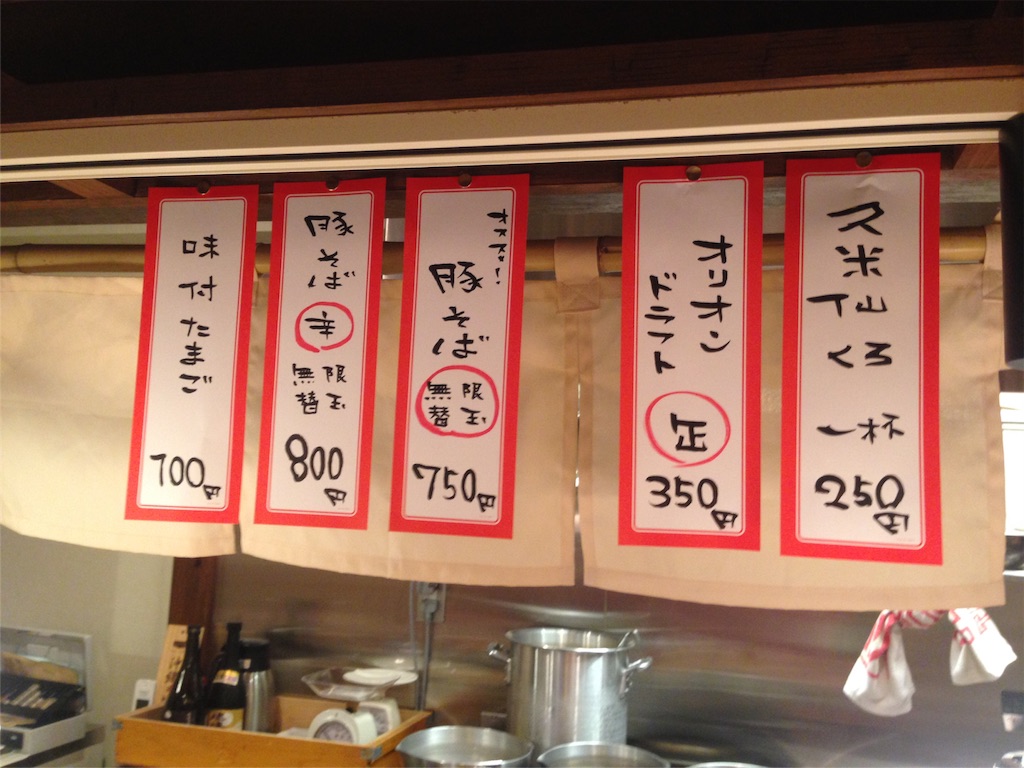 久米仙
くろ
一杯
250円
オリオン
ドラフト
生
350円
オススメ!
豚そば
無限
替玉
750円
豚そば
辛
無限
替玉
800円
味付たまご
100円